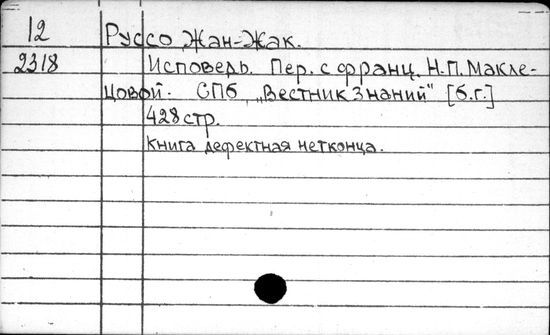 12 Руссо Жан-Жак.
2318 Исповедь. Пер. с франц. Н.П. Макле-
цовой. СПб „Вестник Знаний" [б.г.]
428 стр.
Книга дефектная нет конца.